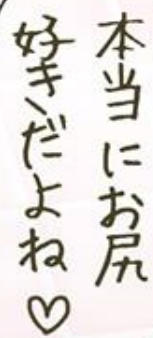 本当にお尻
好きだよね♡